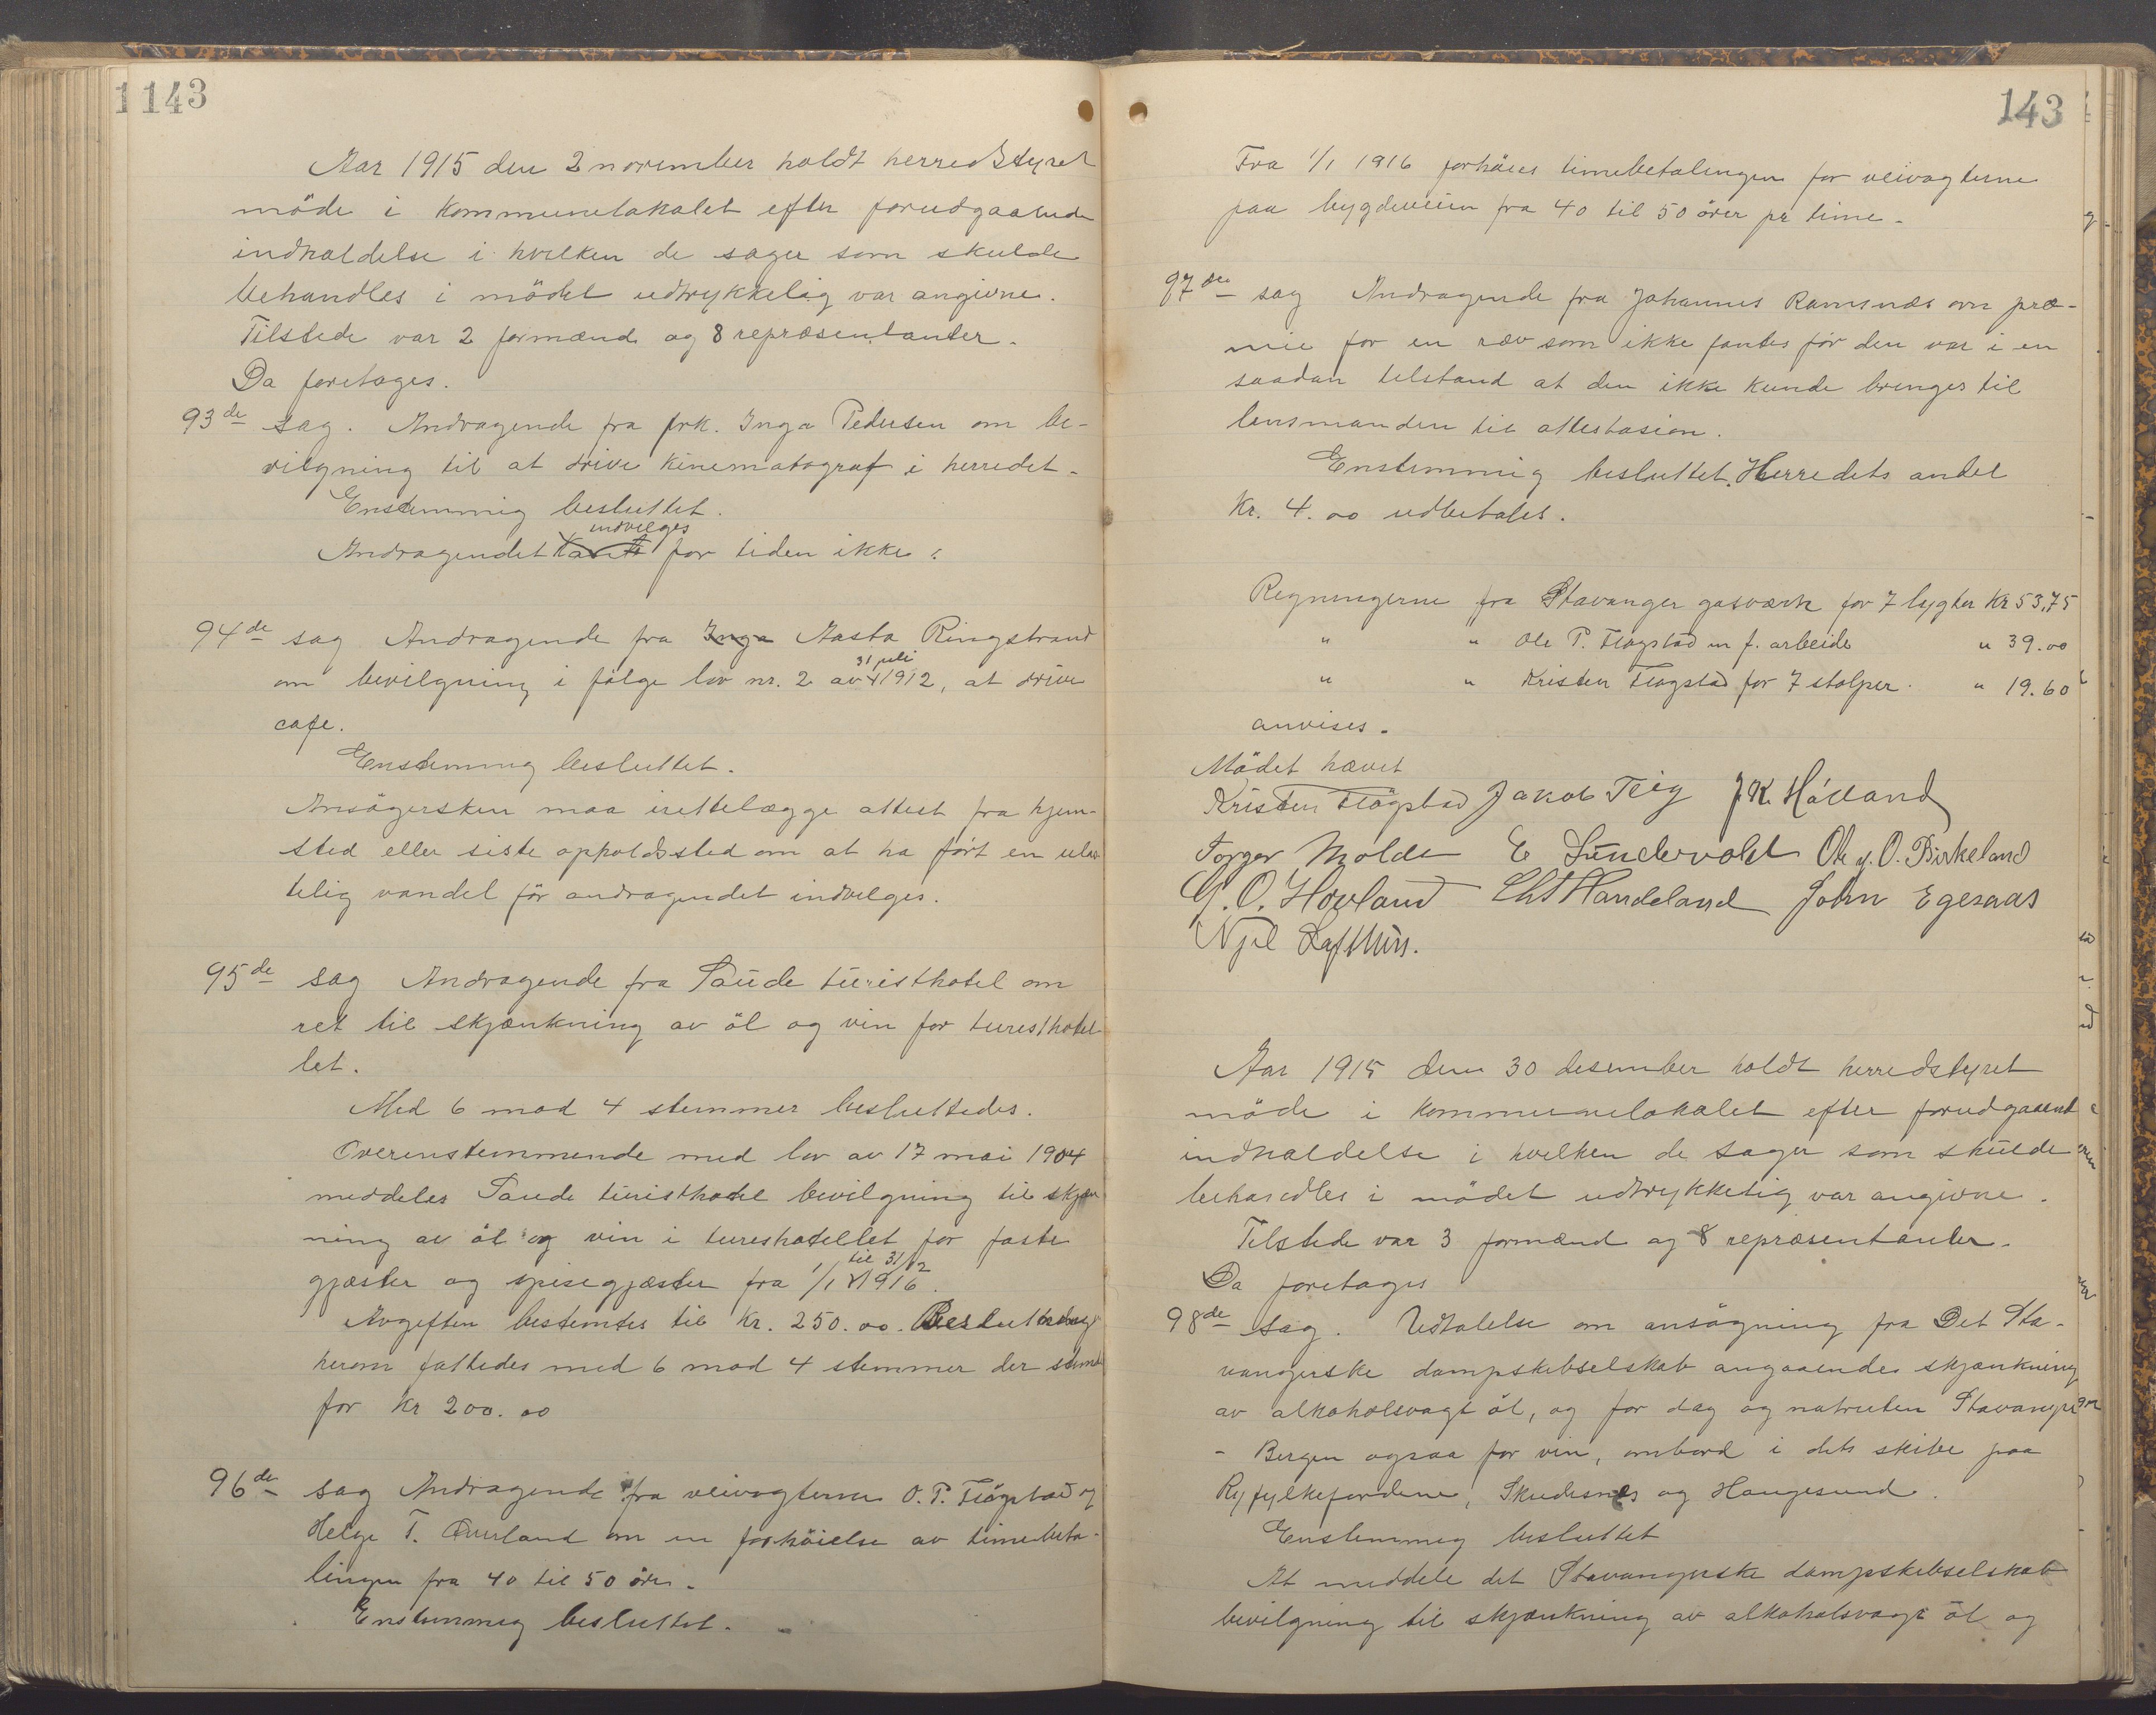 1143
Aar 1915 den 2 november holdt herredstyret
möde i kommunelokalet efter forudgaaende
indkaldelse i hvilken de sager som skulde
behandles i mödet udtrykkelig var angivne.
Tilstede var 2 formænd og 8 repræsentanter.
Da foretages.
93de sag. Andragende fra frk. Inga Pedersen om be-
vilgning til at drive kinematograf i herredet.
Enstemmig besluttet.
indvilges
Andragendet for tiden ikke.
94de sag Andragende fra Inga Aasta Ringstrand
31 juli
om bevilgning i fölge lov nr. 2 av 1912, at drive
cafe.
Enstemmig besluttet.
Ansögersken maa irettelægge attest fra hjem-
sted eller siste opholdssted om at ha fört en ulas
telig vandel för andragendet indvilges.
95de sag Andragende fra Saude turisthotel om
ret til skjænkning av öl og vin for turisthotel
let.
Med 6 mod 4 stemmer besluttedes.
Overenstemmende med lov av 17 mai 1904
meddeles Saude turisthotel bevilgning til skjæn
ning av öl og vin i tureshotellet for faste
til 31/12
gjæster og spisegjæster fra 1/1 1916.
Avgiften bestemtes til Kr. 250.00. Beslutning
herom fattedes med 6 mod 4 stemmer der stemte
for Kr 200.00
96de sag Andragende fra veivogterne O. P. Flögstad og
Helge T. Överland om en forhöielse av timebeta-
lingen fra 40 til 50 öre.
Enstemmig besluttet.
143
Fra 1/1 1916 forhöies timebetalingen for veivogterne
paa bygdeveien fra 40 til 50 örer pr time.
97de sag Andragende fra Johannes Ramsnæs om præ-
mie for en ræv som ikke fantes för den var i en
saadan tilstand at den ikke kunde bringes til
lensmanden til attestasion.
Enstemmig besluttet. Herredets andel
Kr. 4.00 udbetales.
Regningerne fra Stavanger gasværk for 7 lygter Kr 53,75
" " Ole P. Flögstad m f. arbeide " 39.00
" " Kristen Flögstad for 7 stolper. " 19.60
anvises.
Mödet hævet
Kristen Flögstad Jakob Teig J K. Hálland
Torger Molde E Sundevold Ole g. O. Birkeland
G. O. Hovland Cht Handeland John Egenæs
Njel Lofthus.
Aar 1915 den 30 desember holdt herredstyret
möde i kommunelokalet efter forudgaaend
indkaldelse i hvilken de sager som skulde
behandles i mödet udtrykkelig var angivne.
Tilstede var 3 formænd og 8 repræsentanter.
Da foretages
98de sag. Udtalelse om ansögning fra Det Sta-
vangerske dampskibselskab angaaende skjænkning
av alkoholsvagt öl, og for dag og natruten Stavanger
- Bergen ogsaa for vin, ombord i dets skibe paa
Ryfylkefjordene, Skudesnes og Haugesund.
Enstemmig besluttet
At meddele det Stavangerske dampskibselskab
bevilgning til skjænkning av alkoholsvagt öl og